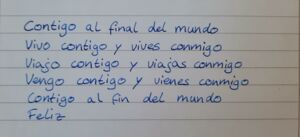 Contigo al final del mundo
Vivo contigo y vives conmigo
Viajo contigo y viajas conmigo
Vengo contigo y vienes conmigo
Contigo al fin del mundo
Feliz